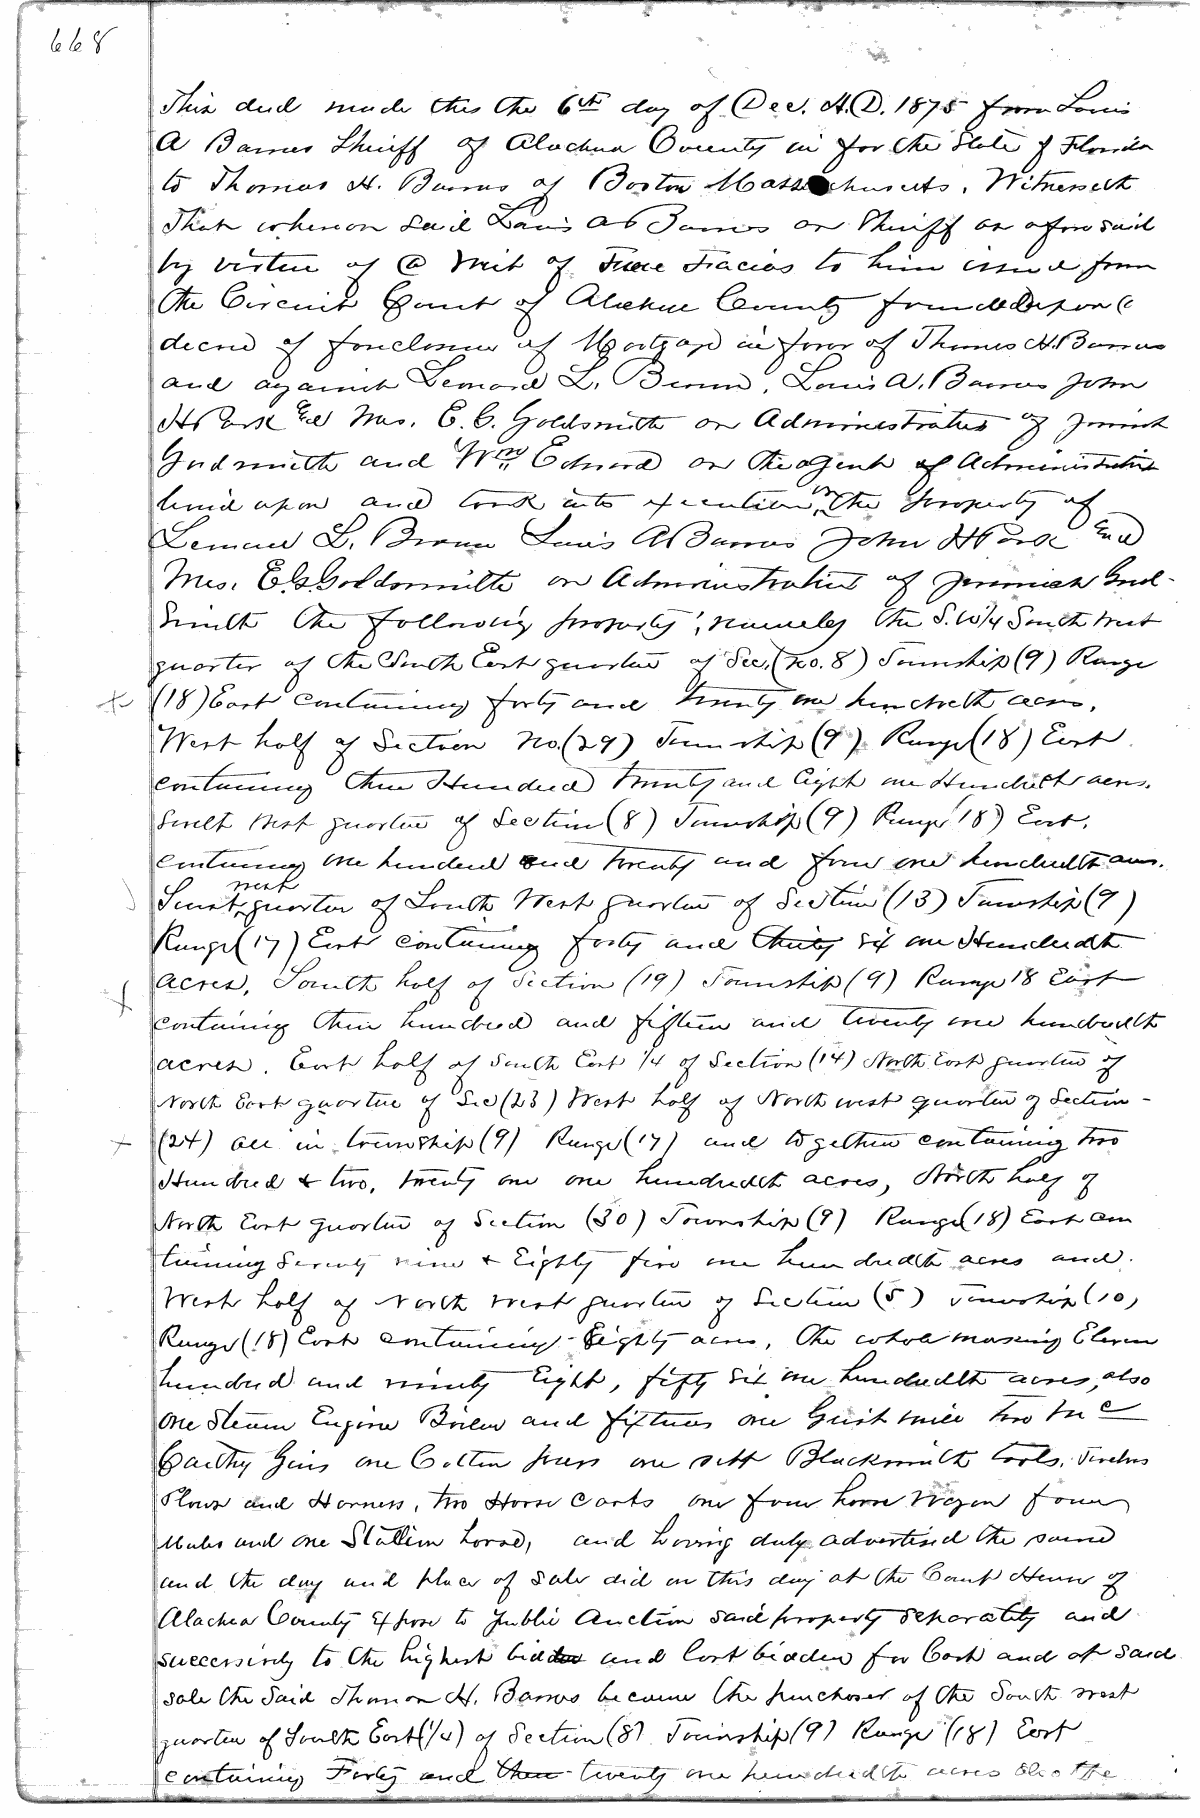 668
This deed made this the 6th day of Dec. A.D. 1875 from Louis
A Barnes Sheriff of Alachua County in for the State of Florida
to Thomas H. Barnes of Boston Massachusetts. Witnesseth
That whereas said Louis A Barnes as Sheriff as aforesaid
by virtue of a Writ of Fiere Facias to him issued from
the Circuit Court of Alachua County founded upon a
decree of foreclosure of Mortgage in favor of Thomas H. Barnes
and against Lemuel L. Brown, Louis A. Barnes John
H and Mrs. E. C. Goldsmith as Administratrix of
Goldsmith and Wm Edward as the agent of Administratrix
levied upon and took into execution on the property of
Lemuel L. Brown Louis A Barnes John H and
Mrs. E. G. Goldsmith as Administratrix of Jeremiah Gold-
smith the following property; namely the S.W 1/4 South West
quarter of the South East quarter of Sec. (No. 8) Township (9) Range
(18) East containing forty and twenty one hundreth acres.
West half of Section No. (29) Township (9) Range (18) East
containing three Hundred twenty and Eight one Hundreth acres.
South West quarter of Section (8) Township (9) Range (18) East.
containing one hundred and twenty and four one hundredth acres.
west
quarter of South West quarter of Section (13) Township (9)
Range (17) East containing forty and thirty six one Hundredth
acres, South half of Section (19) Township (9) Range 18 East
containing three hundred and fifteen and twenty one hundredth
acres. East half of South East 1/4 of Section (14) North East quarter of
North East quarter of Sec (23) West half of North west quarter of Section -
(24) all in township (9) Range (17) and together containing two
Hundred & two, twenty one one hundredth acres, North half of
North East quarter of Section (30) Township (9) Range (18) East con
taining Seventy nine & Eighty five one hundredth acres and.
West half of North West quarter of Section (5) Township (10)
Range (18) East containing Eighty acres, the whole making Eleven
hundred and ninety Eight, fifty six one hundredth acres, also
one Steam Engine Boiler and fixtures one Grist mill two Mc
Carthy Gins one Cotton press one sett Blacksmith tools, Twelve
Plows and Harness, two Horse Carts one four horse Wagon four
Mules and one Stallion horse, and having duly advertised the same
and the day and place of sale did on this day at the Court House of
Alachua County Expose to public Auction said property separately and
successively to the highest bidder and last bidder for Cash and at said
sale the said Thomas H. Barnes became the purchaser of the South west
quarter of South East (1/4) of Section (8) Township (9) Range (18) East
containing Forty and then twenty one hundredth acres also the